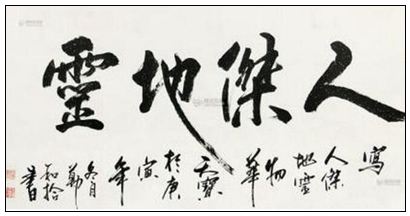 人傑地靈
寫
人傑
地靈
物
華
天寶
於庚
寅
年
冬月
書